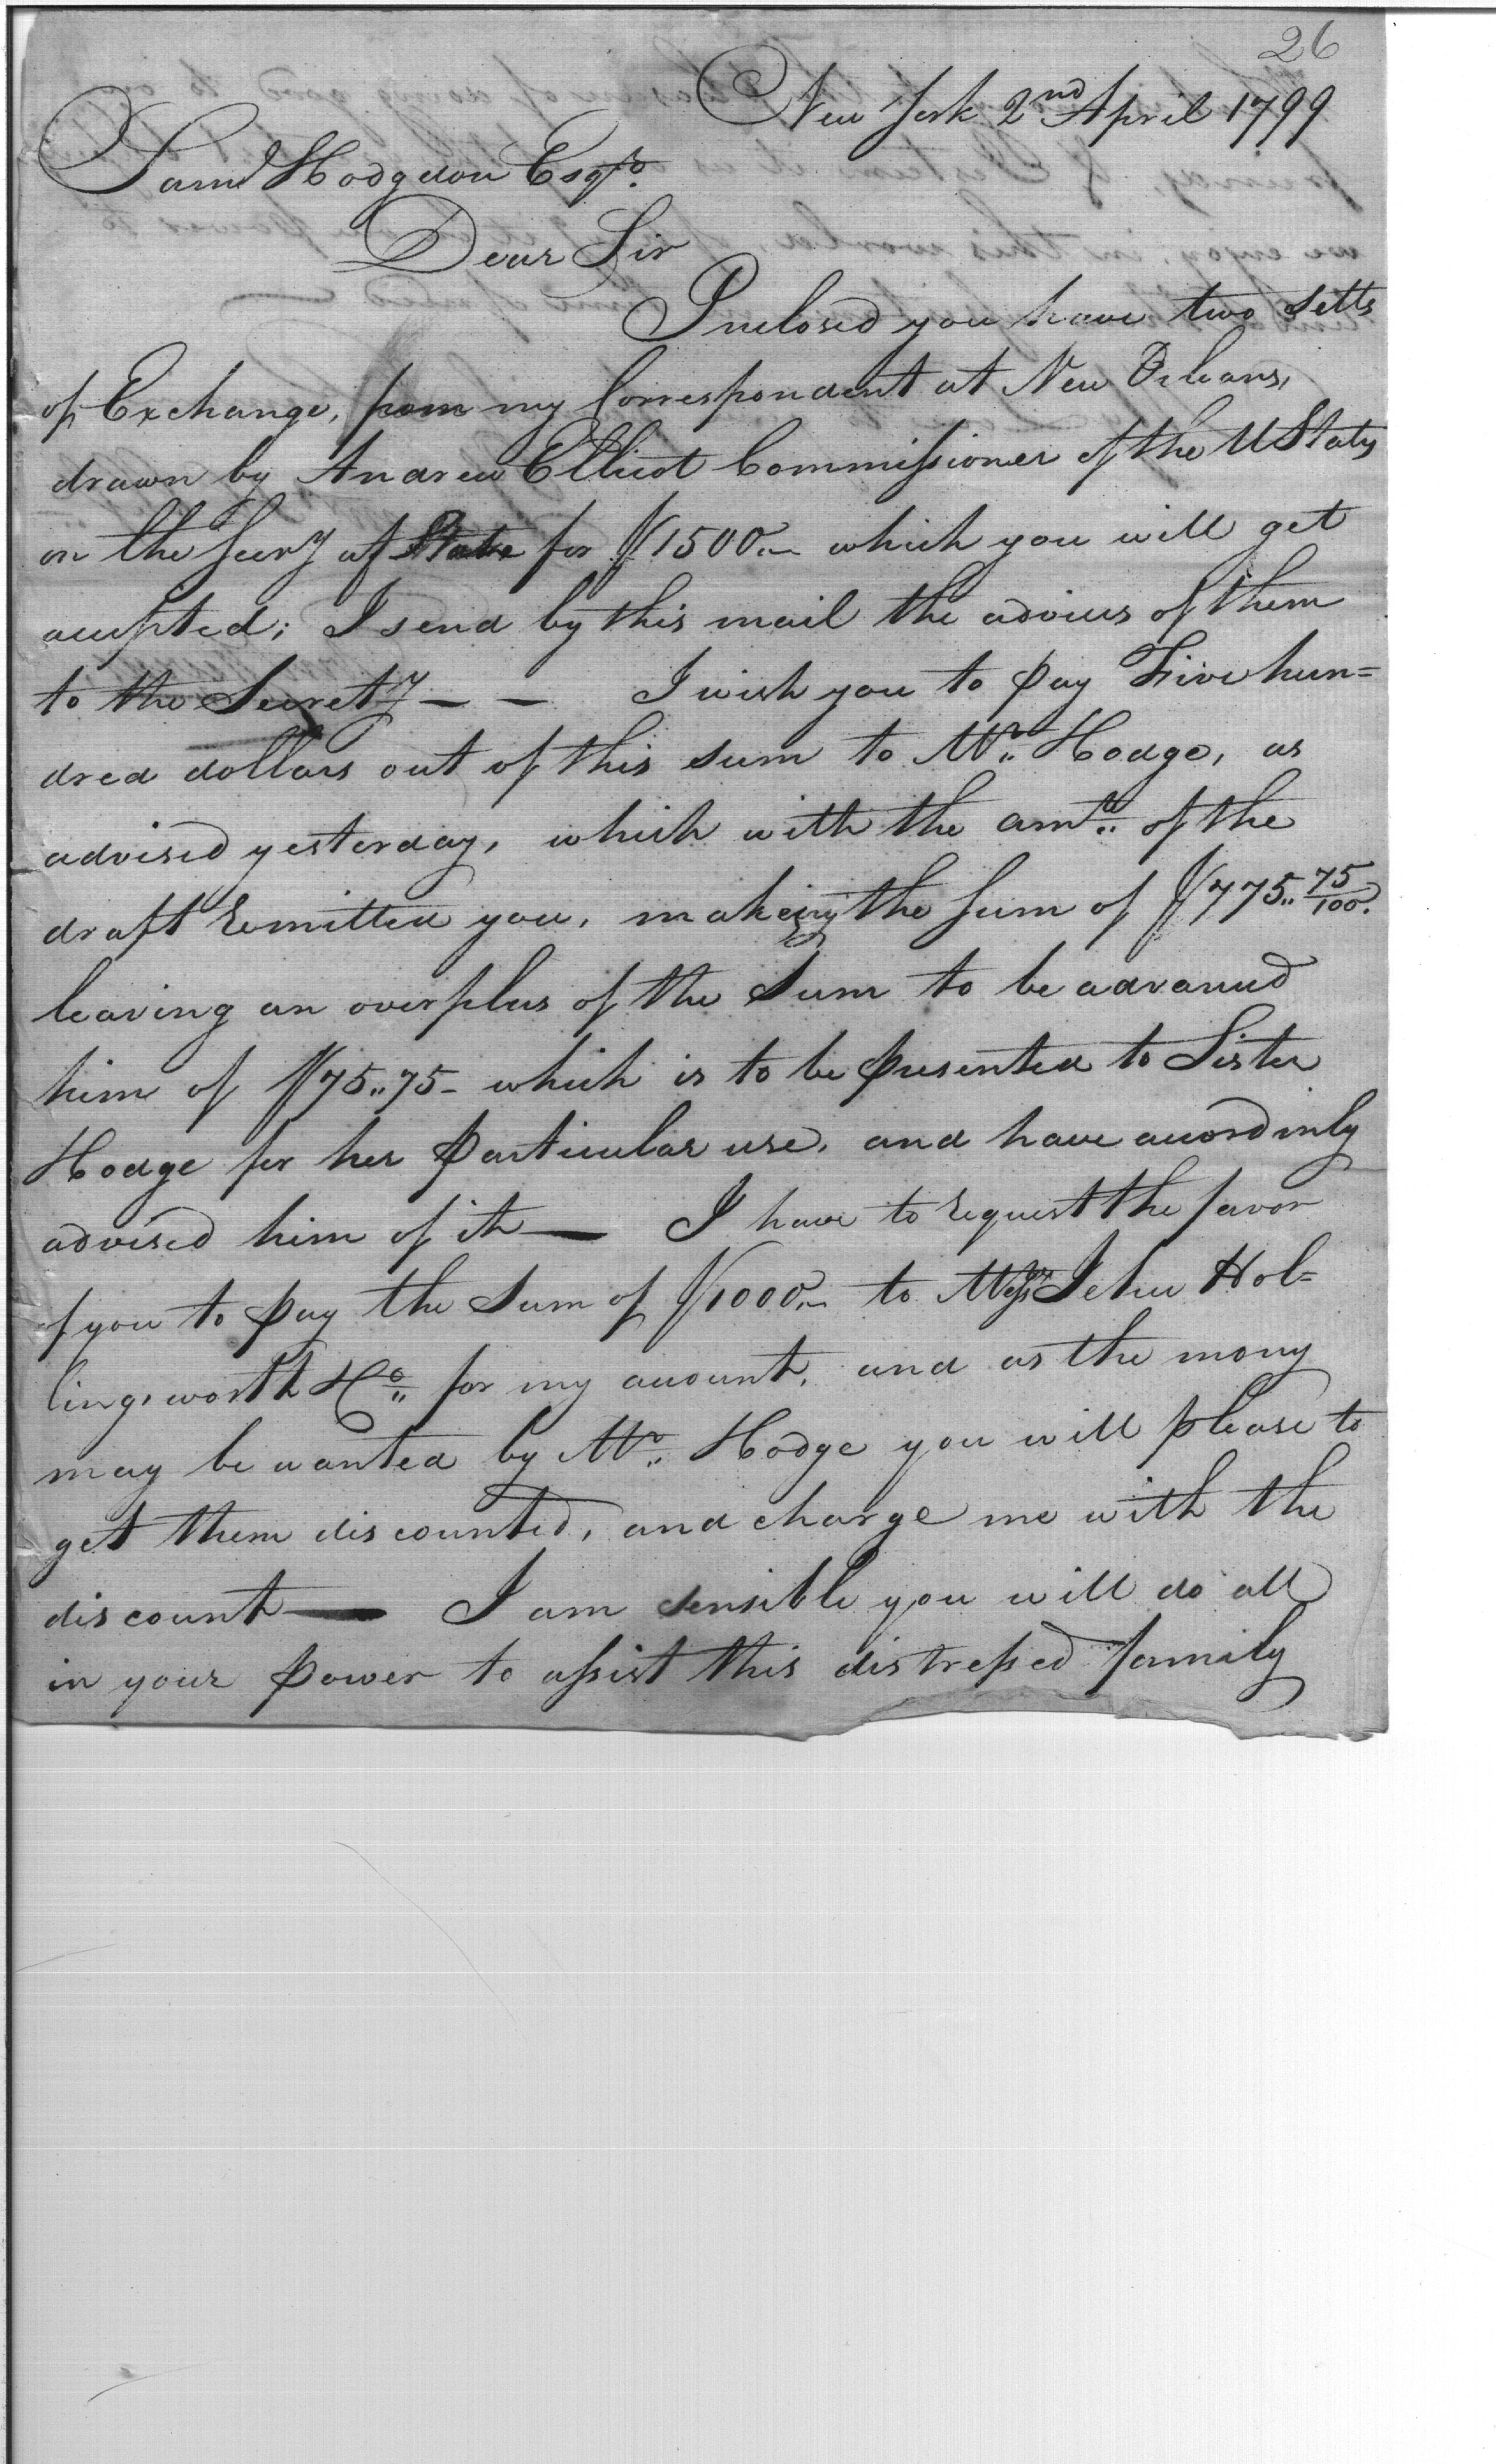 26
New York 2nd April 1799
Saml Hodgdon Esqr.
Dear Sir
Inclosed you have two setts
of Exchange, from my Correspondent at New Orleans,
drawn by Andrew Ellicot Commissioner of the UStates
on the Secry of State for $1500.– which you will get
accepted; I send by this mail the advices of them
to the Secrety — — I wish you to pay Five hun=
dred dollars out of this sum to Mr. Hodge, as
advised yesterday, which with the amt. of the
draft remitted you, makeing the sum of $775.. 75/100.
leaving an overplus of the sum to be advanced
him of $75..75– which is to be presented to Sister
Hodge for her particular use, and have accordinly
advised him of it — I have to request the favor
of you to pay the sum of $1000.– to Messrs Jehu Hol=
lingsworth & Co. for my account, and as the mony
may be wanted by Mr. Hodge you will please to
get them discounted, and charge me with the
discount — I am sensible you will do all
in your power to assist this distressed family